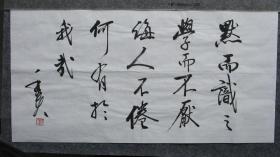 默而識之
學而不厭
誨人不倦
何有於
我哉